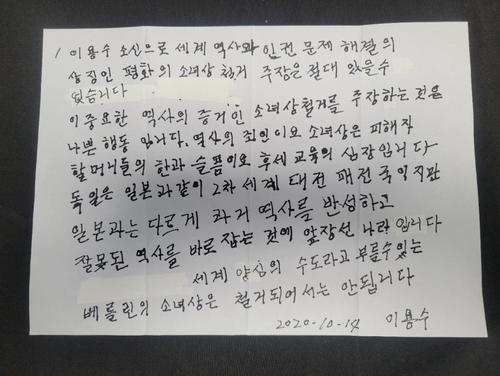 이용수 소신으로 세계 역사와 인권 문제 해결의
상징인 평화의 소녀상 철거 주장은 절대 있을수
없습니다
이중요한 역사의 증거인 소녀상철거를 주장하는 것은
나쁜 행동 입니다. 역사의 죄인이요 소녀상은 피해자
할머니들의 한과 슬픔이요 후세 교육의 심장입니다
독일은 일본과같이 2차 세계 대전 패전국 이지만
일본과는 다르게 과거 역사를 반성하고
잘못된 역사를 바로 잡는 것에 앞장선 나라 입니다
세계 양심의 수도라고 부를수있는
베를린의 소녀상은 철거되어서는 안됩니다
2020-10-14 이용수